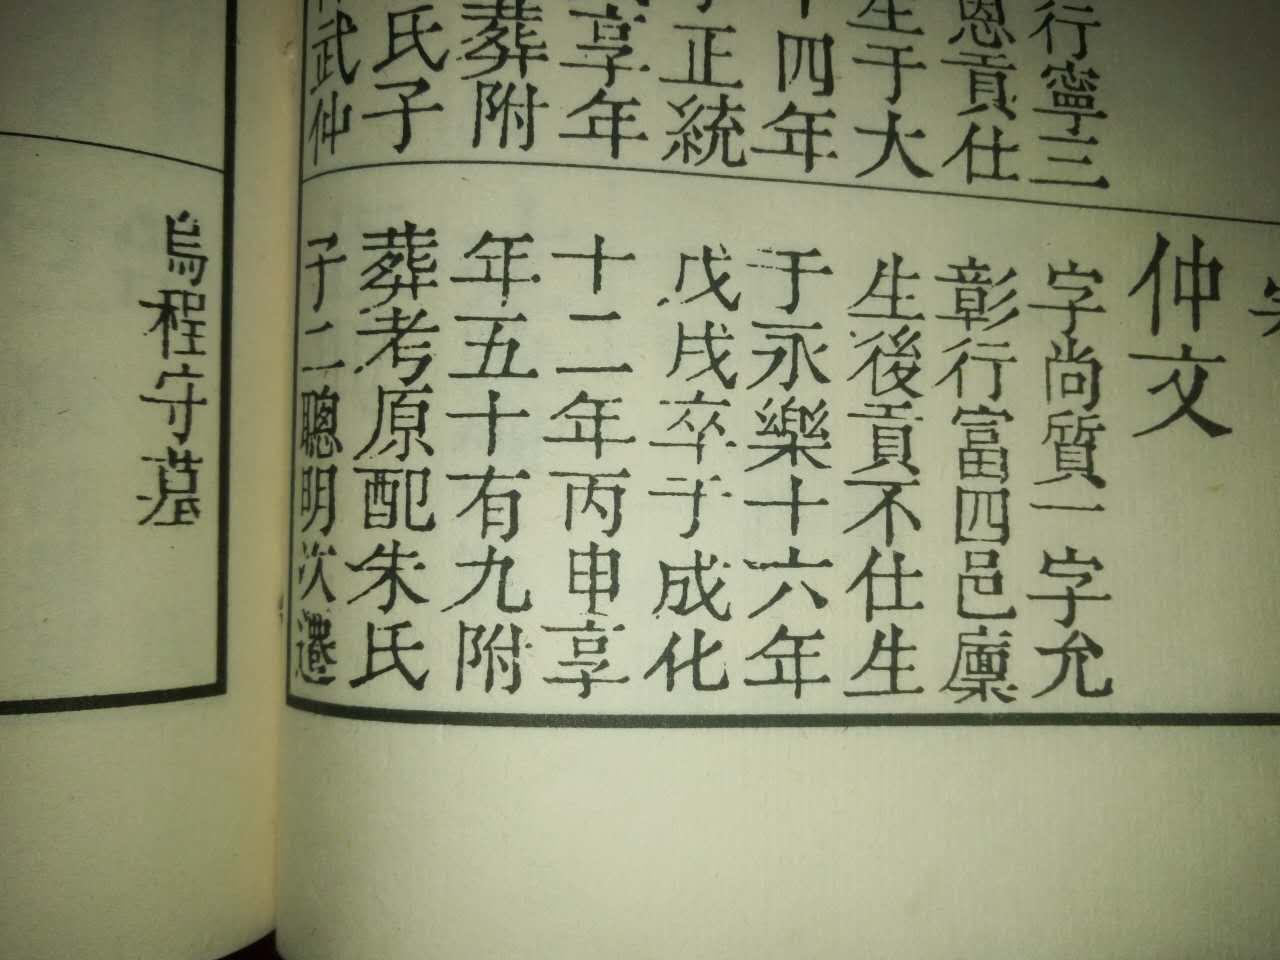 行寧三
恩貢仕
生于大
十四年
于正統
享年
葬附
氏子
武仲
仲文
字尚質一字允
彰行富四邑廩
生後貢不仕生
于永樂十六年
戊戌卒于成化
十二年丙申享
年五十有九附
葬考原配朱氏
子二聰明次遷
烏程守墓